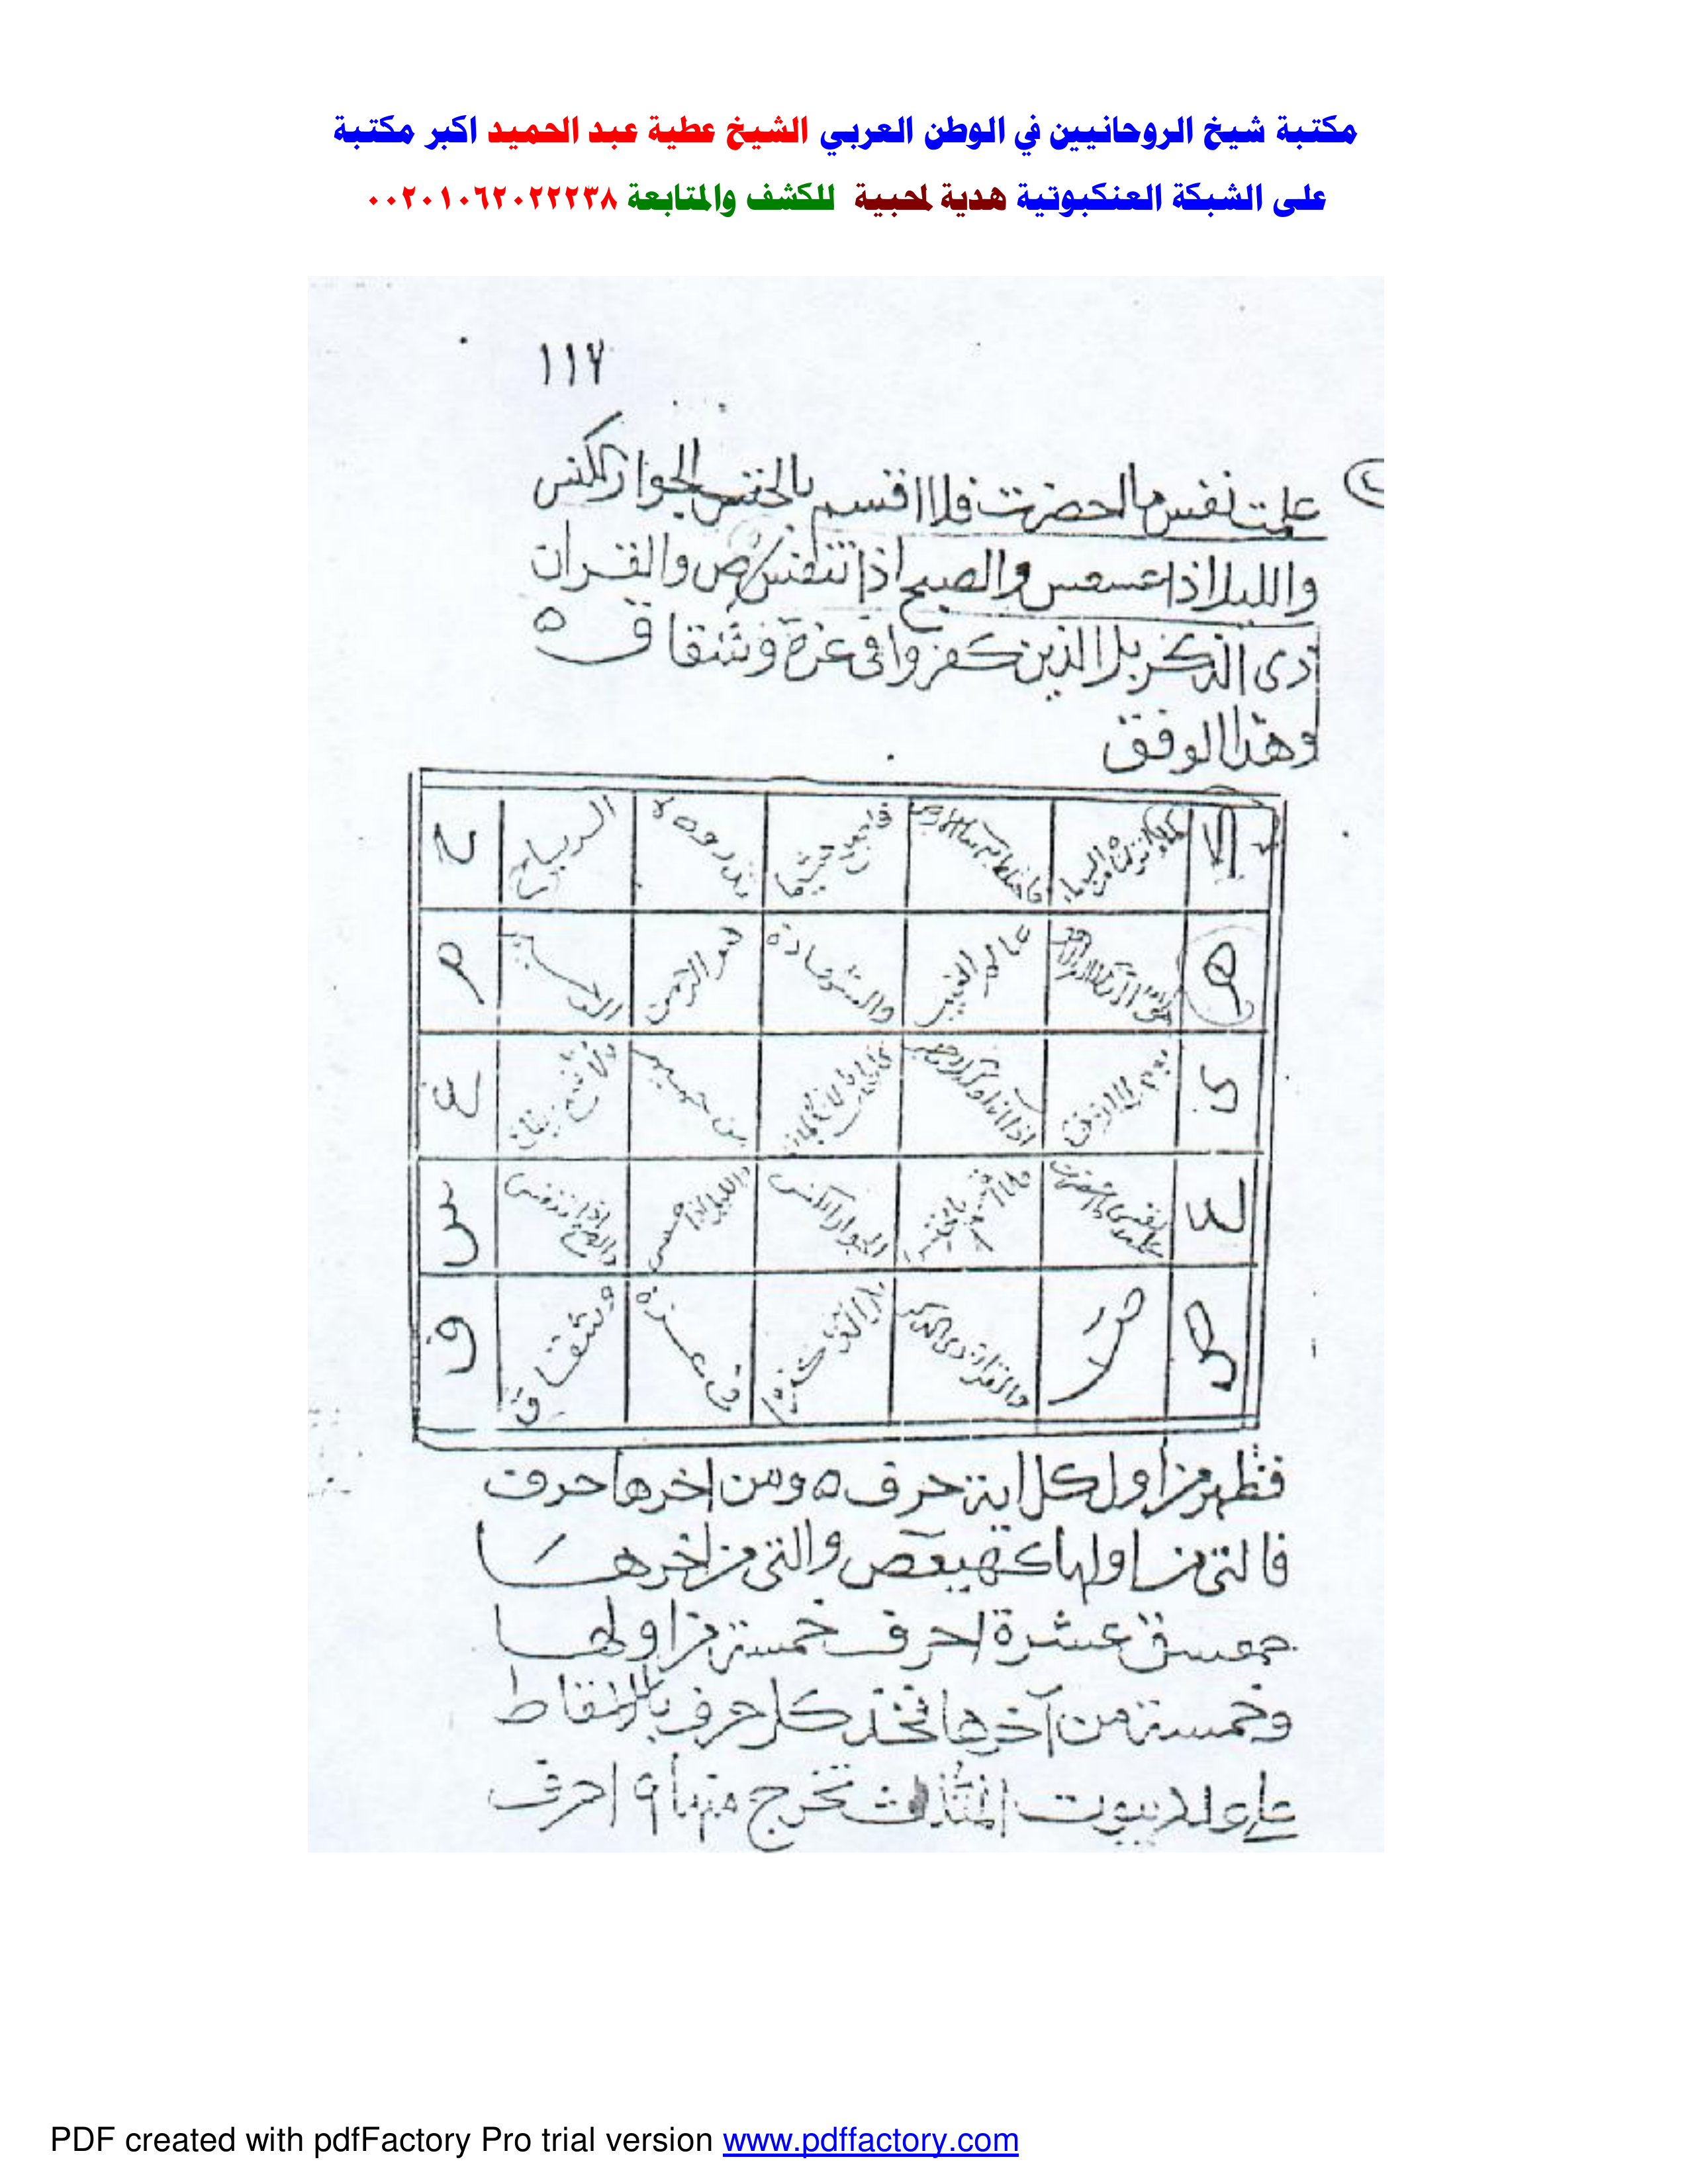 مكتبة شيخ الروحانيين في الوطن العربي الشيخ عطية عبد الحميد اكبر مكتبة
على الشبكة العنكبوتية هدية لمحبية للكشف والمتابعة ٠٠٢٠١٠٦٢٠٢٢٢٣٨
١١٧
علمت نفس ما احضرت فلا اقسم بالخنس الجوار الكنس
والليل اذا عسعس والصبح اذا تنفس ص والقران
ذى الذكر بل الذين كفروا فى عزة وشقاق ٥
وهذا الوفق
الرياح ح
هو عالم الغيب والشهادة هو الرحمن م
ى يوم من حميم ع
فلا بالخنس الجوار الكنس والليل اذا س
ص ص والقران ذى الذكر بل الذين كفروا فى عزة وشقاق ق
فظهر من اول كل اية حرف ٥ ومن اخرها حرف
فالتى من اولها كهيعص والتى من اخرها
حمعسق عشرة احرف خمسة من اولها
وخمسة من آخرها تخذ كل حرف
بيوت المثلث تخرج منها ٩ احرف
PDF created with pdfFactory Pro trial version www.pdffactory.com